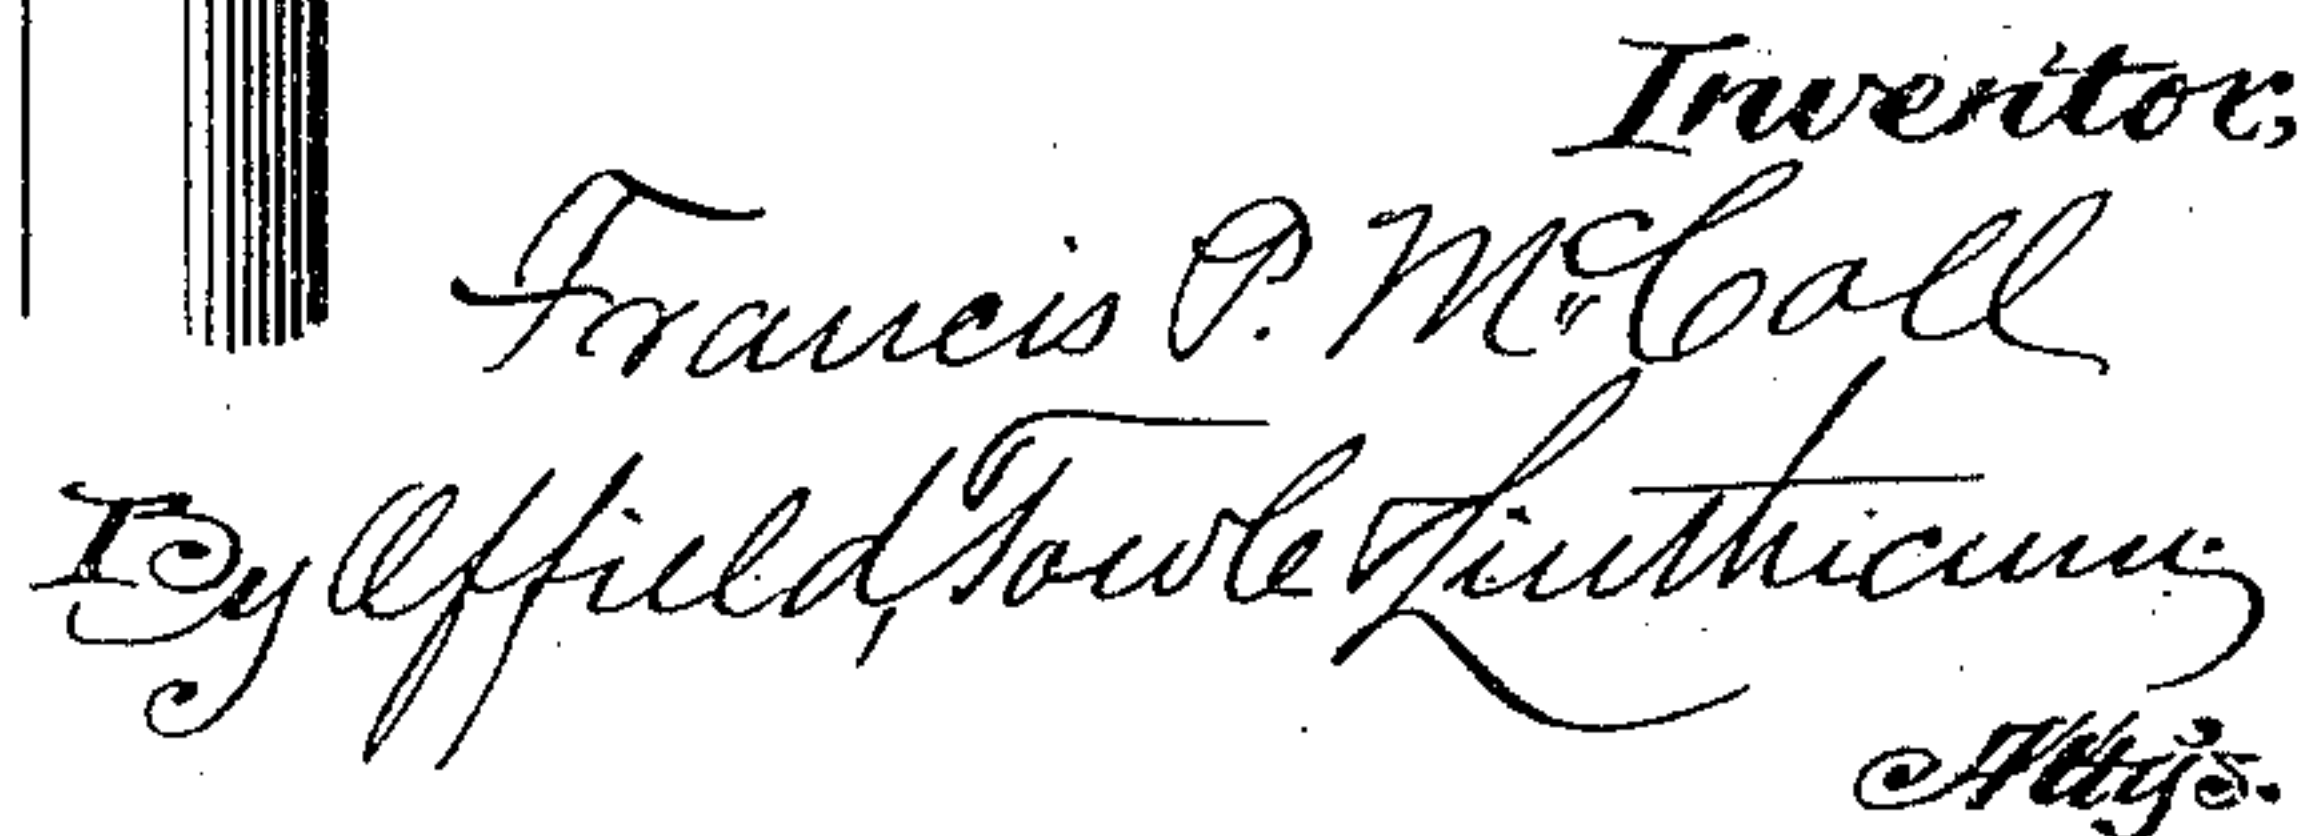 Inventor,
Francis P. McCall
By Offield, Towle & Linthicum.
Att'ys.